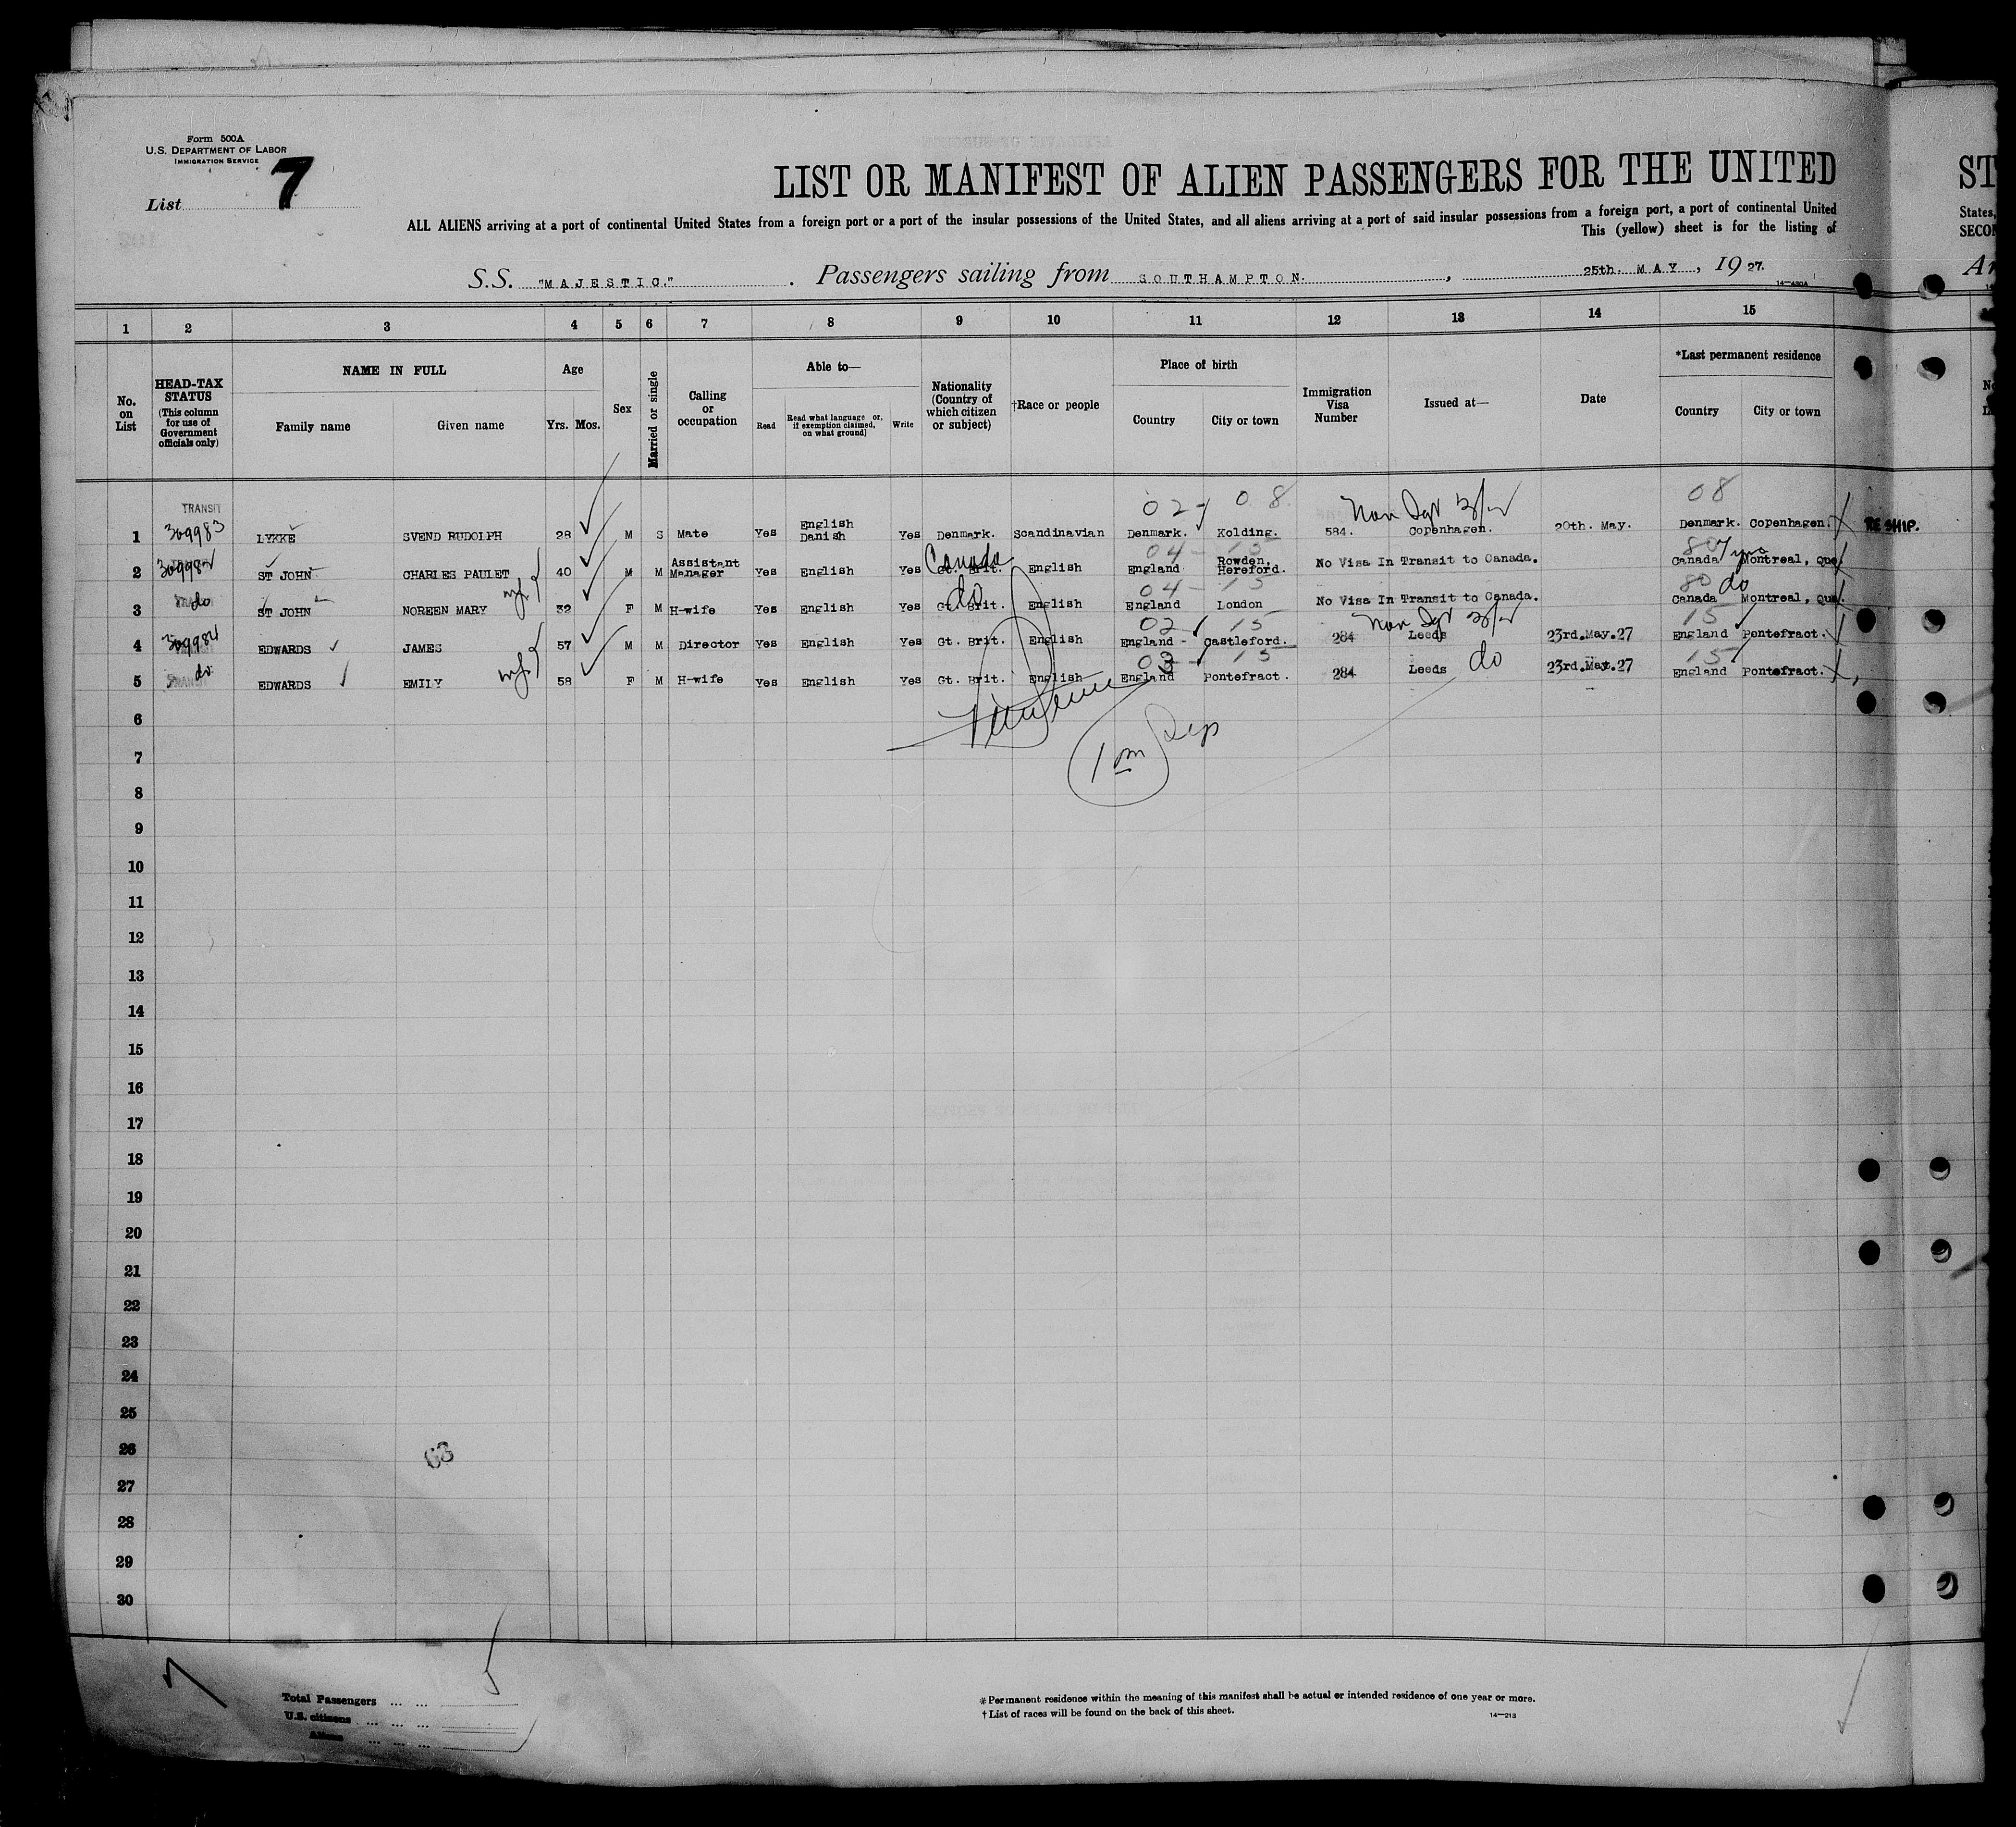 Form 500A
U.S. DEPARTMENT OF LABOR
IMMIGRATION SERVICE
List 7
LIST OR MANIFEST OF ALIEN PASSENGERS FOR THE UNITED
ST
ALL ALIENS arriving at a port of continental United States from a foreign port or a port of the insular possessions of the United States, and all aliens arriving at a port of said insular possessions from a foreign port, a port of continental United
States,
This (yellow) sheet is for the listing of
SECON
S.S. "MAJESTIC." . Passengers sailing from SOUTHAMPTON. , 25th. MAY, 1927.
14-430A
1 2 3 4 5 6 7 8 9 10 11 12 13 14 15
No. on List
HEAD-TAX STATUS (This column for use of Government officials only)
NAME IN FULL
Family name Given name
Age
Yrs. Mos.
Sex
Married or single
Calling or occupation
Able to—
Read Read what language or, if exemption claimed, on what ground) Write
Nationality (Country of which citizen or subject)
†Race or people
Place of birth
Country City or town
Immigration Visa Number
Issued at—
Date
*Last permanent residence
Country City or town
TRANSIT 02- 08 08
1 309983 LYKKE SVEND RUDOLPH 28 M S Mate Yes English Danish Yes Denmark. Scandinavian Denmark. Kolding. 584. Copenhagen. 20th. May. Denmark. Copenhagen. RE SHIP.
04- 15 80 7 yrs
2 ST JOHN CHARLES PAULET 40 M M Assistant Manager Yes English Yes Gt. Brit. Canada English England Rowden, Hereford. No Visa In Transit to Canada. Canada Montreal, Que.
04- 15 80 do
3 do ST JOHN NOREEN MARY 32 F M H-wife Yes English Yes Gt. Brit. do English England London No Visa In Transit to Canada. Canada Montreal, Que.
02 15 15
4 309984 EDWARDS JAMES 57 M M Director Yes English Yes Gt. Brit. English England - Castleford. 284 Leeds 23rd.May.27 England Pontefract.
15 15
5 do TRANSIT EDWARDS EMILY 58 F M H-wife Yes English Yes Gt. Brit. English England Pontefract. 284 Leeds do 23rd.May.27 England Pontefract.
6
7
8
9
10
11
12
13
14
15
16
17
18
19
20
21
22
23
24
25
26
63
27
28
29
30
Total Passengers ... ... 5
U.S. citizens ... ... ...
Aliens ... ... ...
*Permanent residence within the meaning of this manifest shall be actual or intended residence of one year or more.
†List of races will be found on the back of this sheet.
14-213